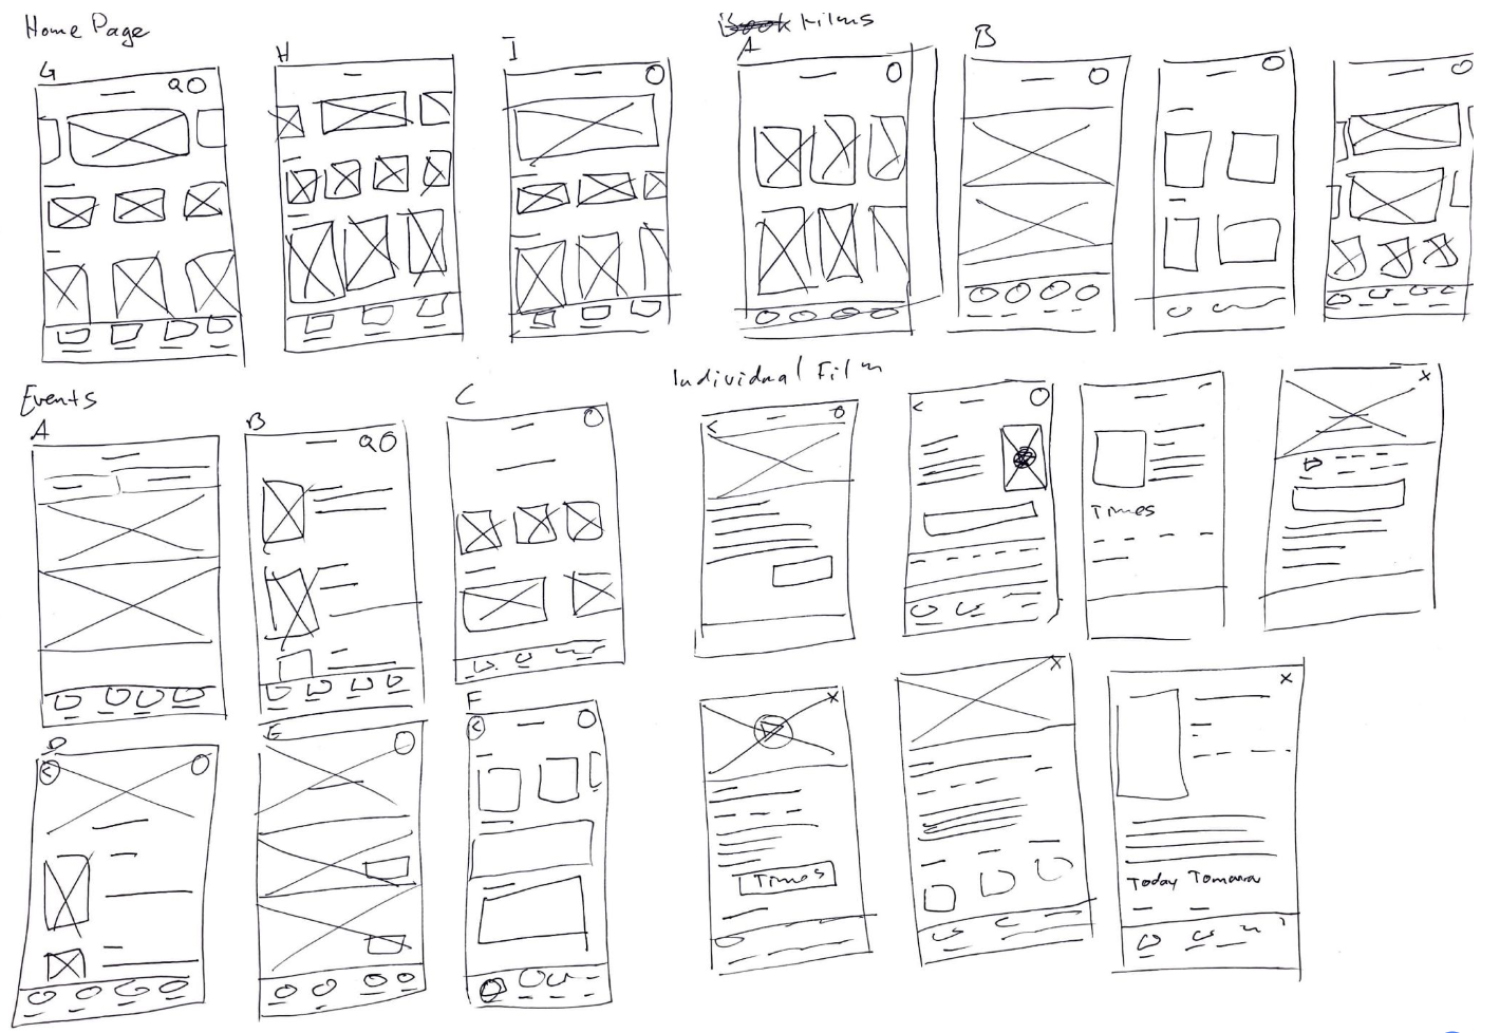 Home Page
G
H
I
Book Films
A
B
Events
A
B
C
D
E
F
Individual Film
Times
Times
Today Tomorrow